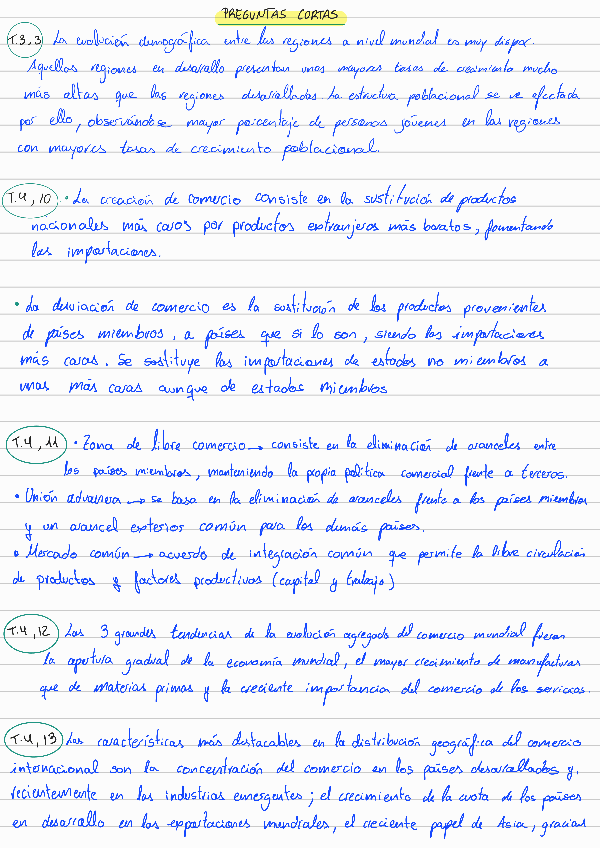 PREGUNTAS CORTAS
T.3,3 La evolución demográfica entre las regiones a nivel mundial es muy dispar.
Aquellas regiones en desarrollo presentan unas mayores tasas de crecimiento mucho
más altas que las regiones desarrolladas. La estructura poblacional se ve efectada
por ello, observándose mayor porcentaje de personas jóvenes en las regiones
con mayores tasas de crecimiento poblacional.
T.4,10 • La creación de comercio consiste en la sustitución de productos
nacionales más caros por productos extranjeros más baratos, fomentando
las importaciones.
• La desviación de comercio es la sustitución de los productos provenientes
de países miembros, a países que si lo son, siendo las importaciones
más caras. Se sustituye las importaciones de estados no miembros a
unas más caras aunque de estados miembros
T.4,11 • Zona de libre comercio → consiste en la eliminación de aranceles entre
los países miembros, manteniendo la propia política comercial frente a terceros.
• Unión aduanera → se basa en la eliminación de aranceles frente a los países miembros
y un arancel exterior común para los demás países.
• Mercado común → acuerdo de integración común que permite la libre circulación
de productos y factores productivos (capital y trabajo)
T.4,12 Las 3 grandes tendencias de la evolución agregada del comercio mundial fueron
la apertura gradual de la economía mundial, el mayor crecimiento de manufacturas
que de materias primas y la creciente importancia del comercio de los servicios.
T.4,13 Las características más destacables en la distribución geográfica del comercio
internacional son la concentración del comercio en los países desarrollados y,
recientemente en las industrias emergentes; el crecimiento de la cuota de los países
en desarrollo en las exportaciones mundiales, el creciente papel de Asia, gracias